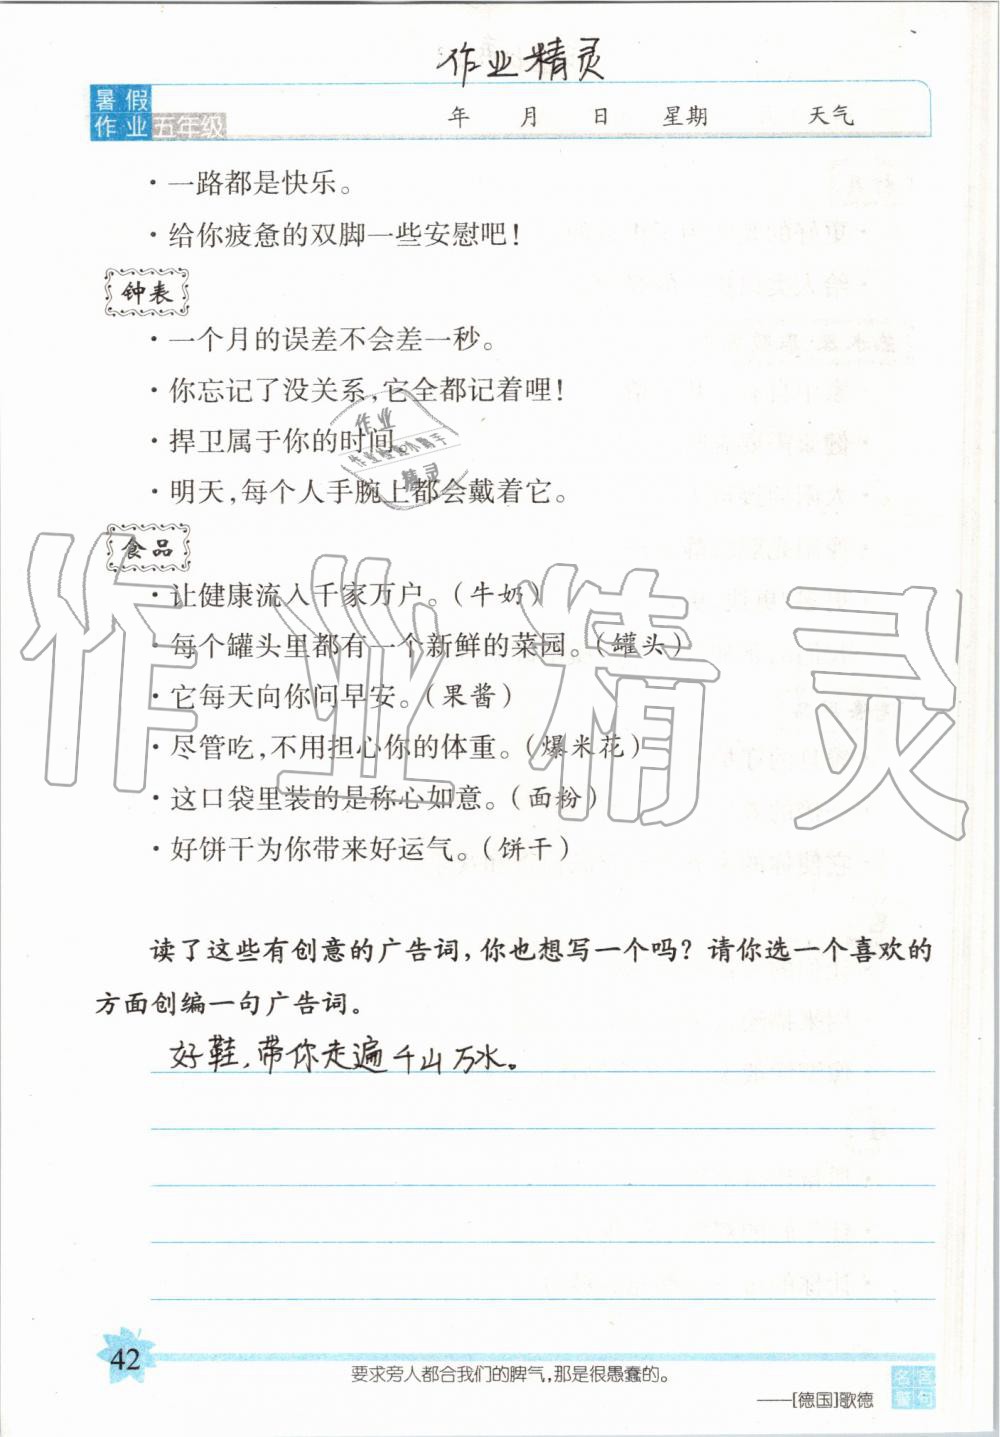 作业精灵
暑假
作业 五年级
年 月 日 星期 天气
·一路都是快乐。
·给你疲惫的双脚一些安慰吧!
钟表
·一个月的误差不会差一秒。
·你忘记了没关系,它全都记着哩!
·捍卫属于你的时间。
·明天,每个人手腕上都会戴着它。
食品
·让健康流入千家万户。(牛奶)
·每个罐头里都有一个新鲜的菜园。(罐头)
·它每天向你问早安。(果酱)
·尽管吃,不用担心你的体重。(爆米花)
·这口袋里装的是称心如意。(面粉)
·好饼干为你带来好运气。(饼干)
作业精灵
读了这些有创意的广告词,你也想写一个吗?请你选一个喜欢的
方面创编一句广告词。
好鞋,带你走遍千山万水。
42
要求旁人都合我们的脾气,那是很愚蠢的。
——[德国]歌德
名言
警句